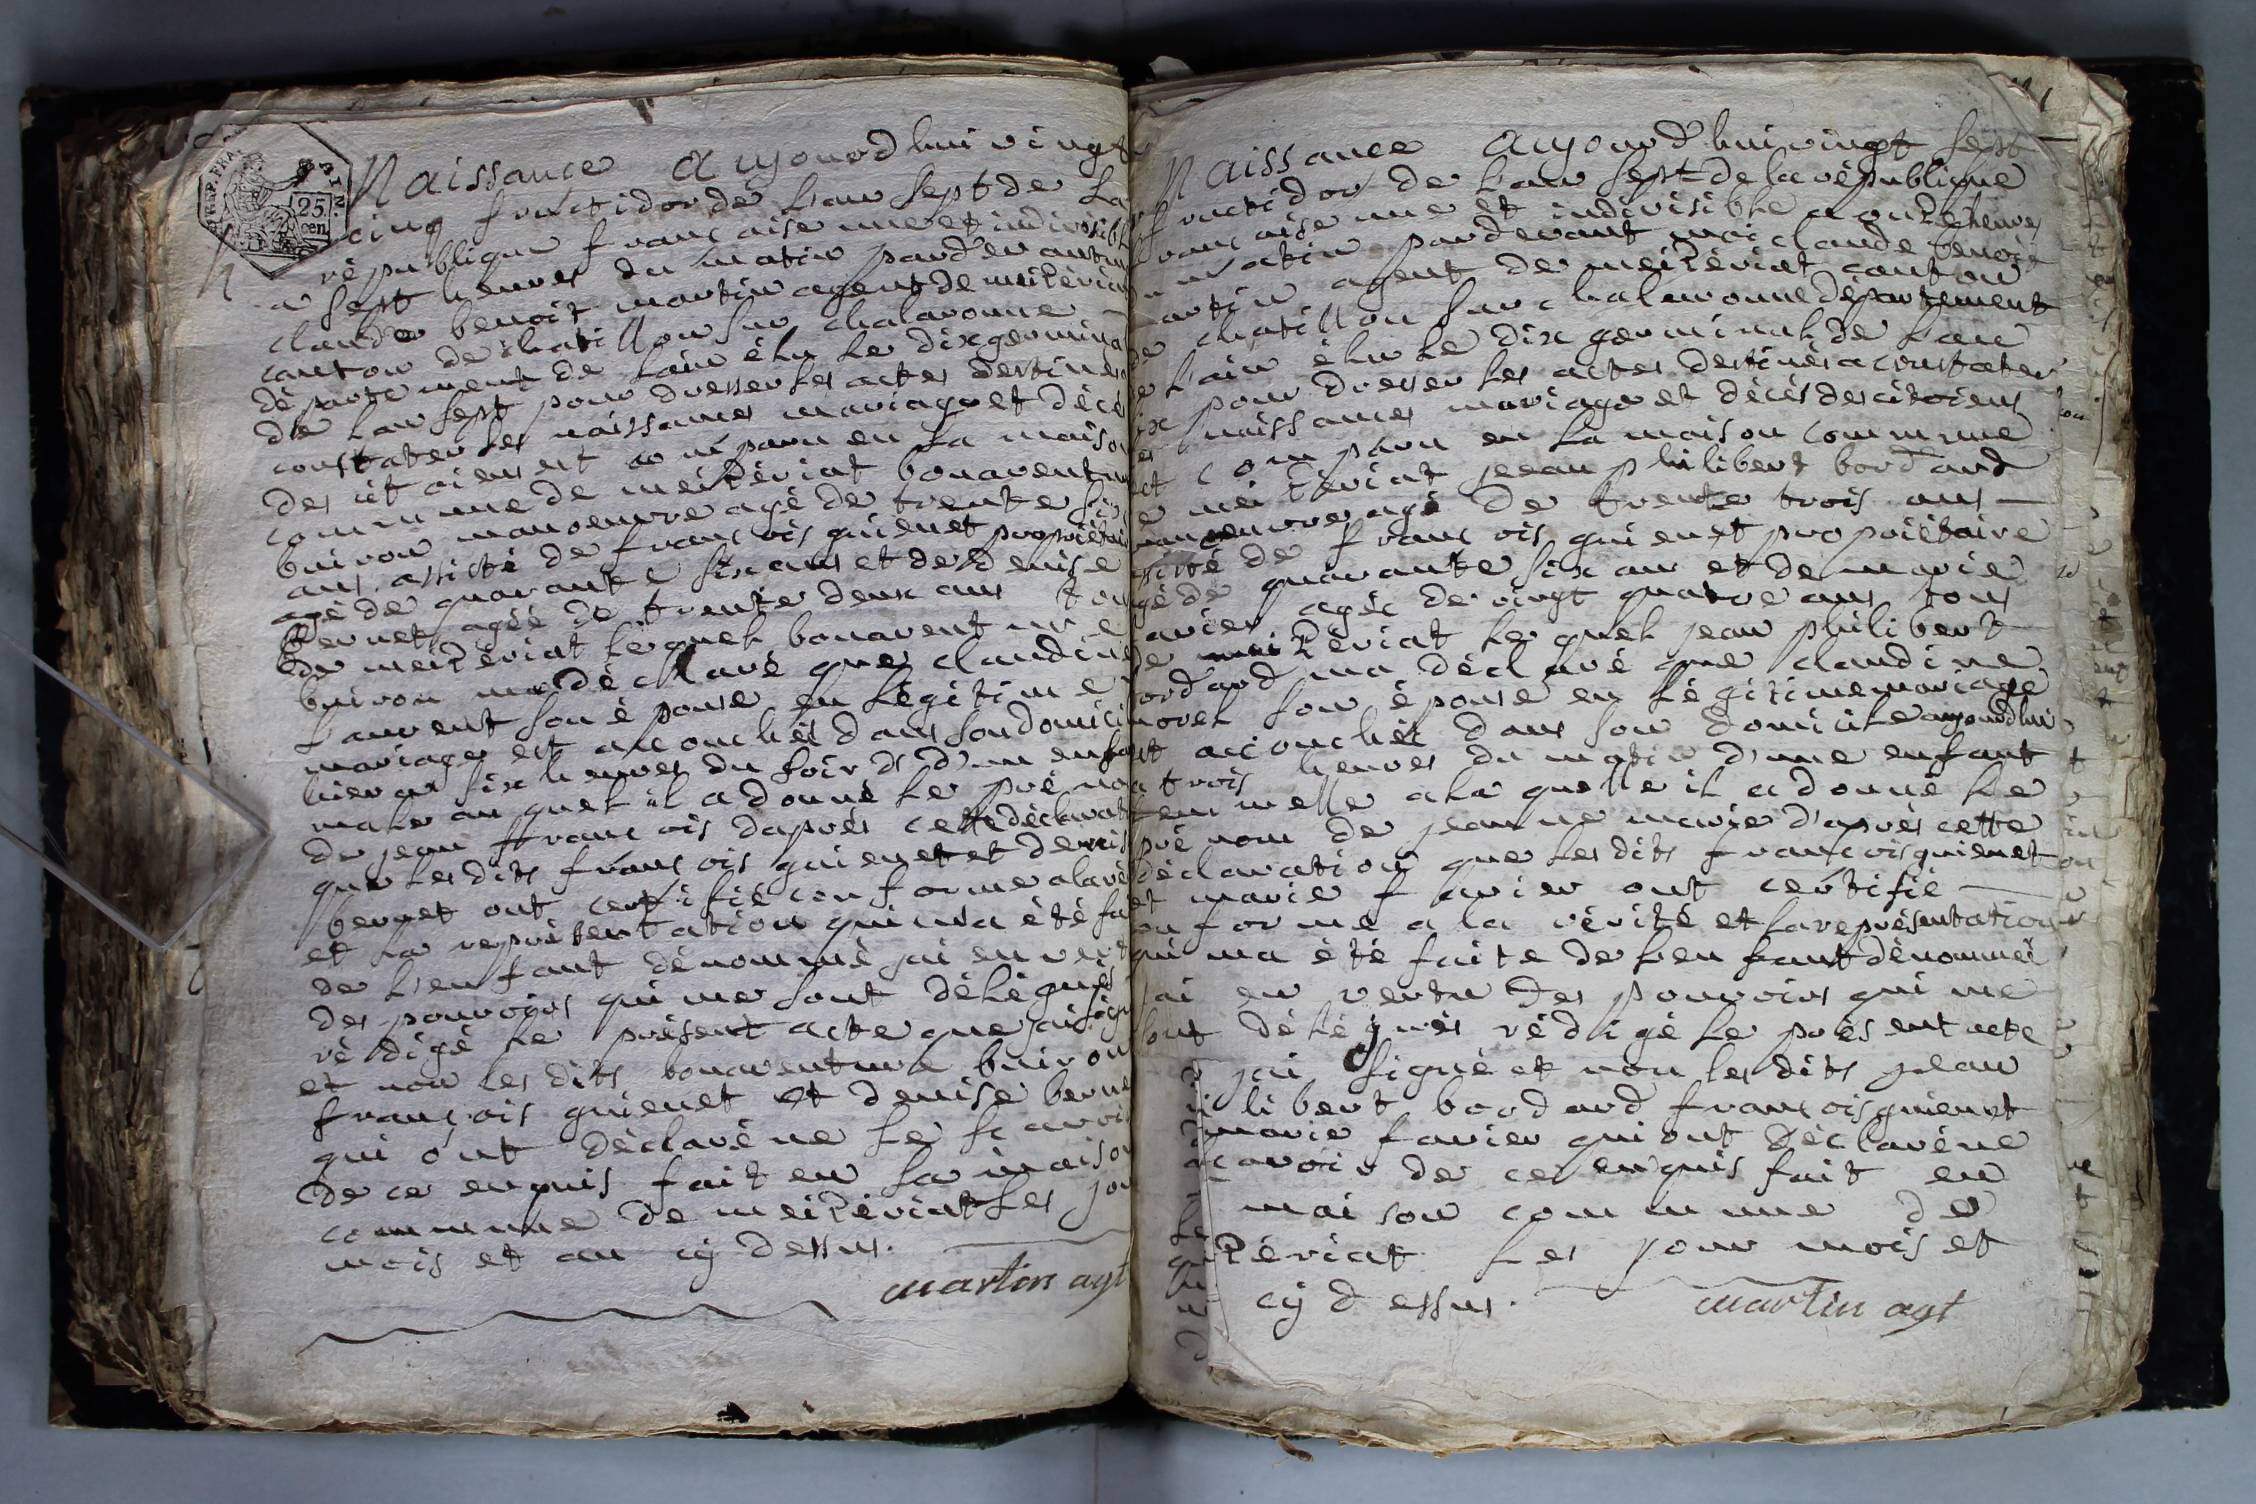 REP. FRA.
AIN.
25
cen.
Naissance aujourdhui vingt
cinq fructidor de l'an sept de la
république francaise une et indivisibl
a sept heures du matin pardevant m
claude benoit martin agent de meizériat
canton de chatillon sur chalaronne
département de lain élu le dix germina
de l'an sept pour dresser les actes destinés a
constater les naissances mariage et décè
des citoiens est comparu en la maison
commune de meizériat bonaventure
buiron manoeuvre agé de trente six
ans assisté de francois guienet propriétai
agé de quarante six ans et de denise
bernet agéé de trente deux ans tou
de meizériat lequel bonaventure
buiron ma déclaré que claudine
laurent son épouse en légitime
mariage est accouchéé dans son domici
hier a six heures du soir d'un enfant
male auquel il a donné le préno
de jean francois daprès cette déclarat
que les dits francois guienet et denis
bernet ont certifié conforme a la vé
et la représentation qui ma été fa
de l'enfant dénommé jai en vert
des pouvoirs qui me sont délégués
rédigé le présent acte que jai sign
et non les dits bonaventure buiron
francois guienet et denise berne
qui ont déclaré ne le scavoi
de ce enquis fait en la maison
commune de meizériat les jou
mois et an cij dessus.
martin agt
Naissance aujourdhui vingt sept
fructidor de l'an sept de la république
francaise une et indivisible a onze heures
du matin pardevant moi claude benoit
martin agent de meizériat canton
de chatillon sur chalaronne département
de l'ain élu le dix germinal de l'an
pour dresser les actes destinés a constater
les naissances mariage et décès des citoiens
est comparu en la maison commune
de meizériat jean philibert bordard
manoeuvre agé de trente trois ans
assisté de francois guienet propriétaire
agé de quarante six an et de marie
favier agéé de vingt quatre ans tous
de meizériat lequel jean philibert
bordard ma déclaré que claudine
morel son épouse en légitime mariage
est accouchéé dans son domicile aujourdhui
a trois heures du matin d'une enfant
femmelle a la quelle il a donné le
prénom de jeanne marie d'après cette
déclaration que les dits francois guienet
et marie favier ont certifié
conforme a la vérité et la représentation
qui ma été faite de l'enfant dénomméé
jai en vertu des pouvoirs qui me
sont délégués rédigé le présent acte
jai signé et non les dits jean
libert bordard francois guienet
marie favier qui ont déclaré ne
scavoir de ce enquis fait en
maison commune de
zériat les jour mois et
cij dessus.
martin agt